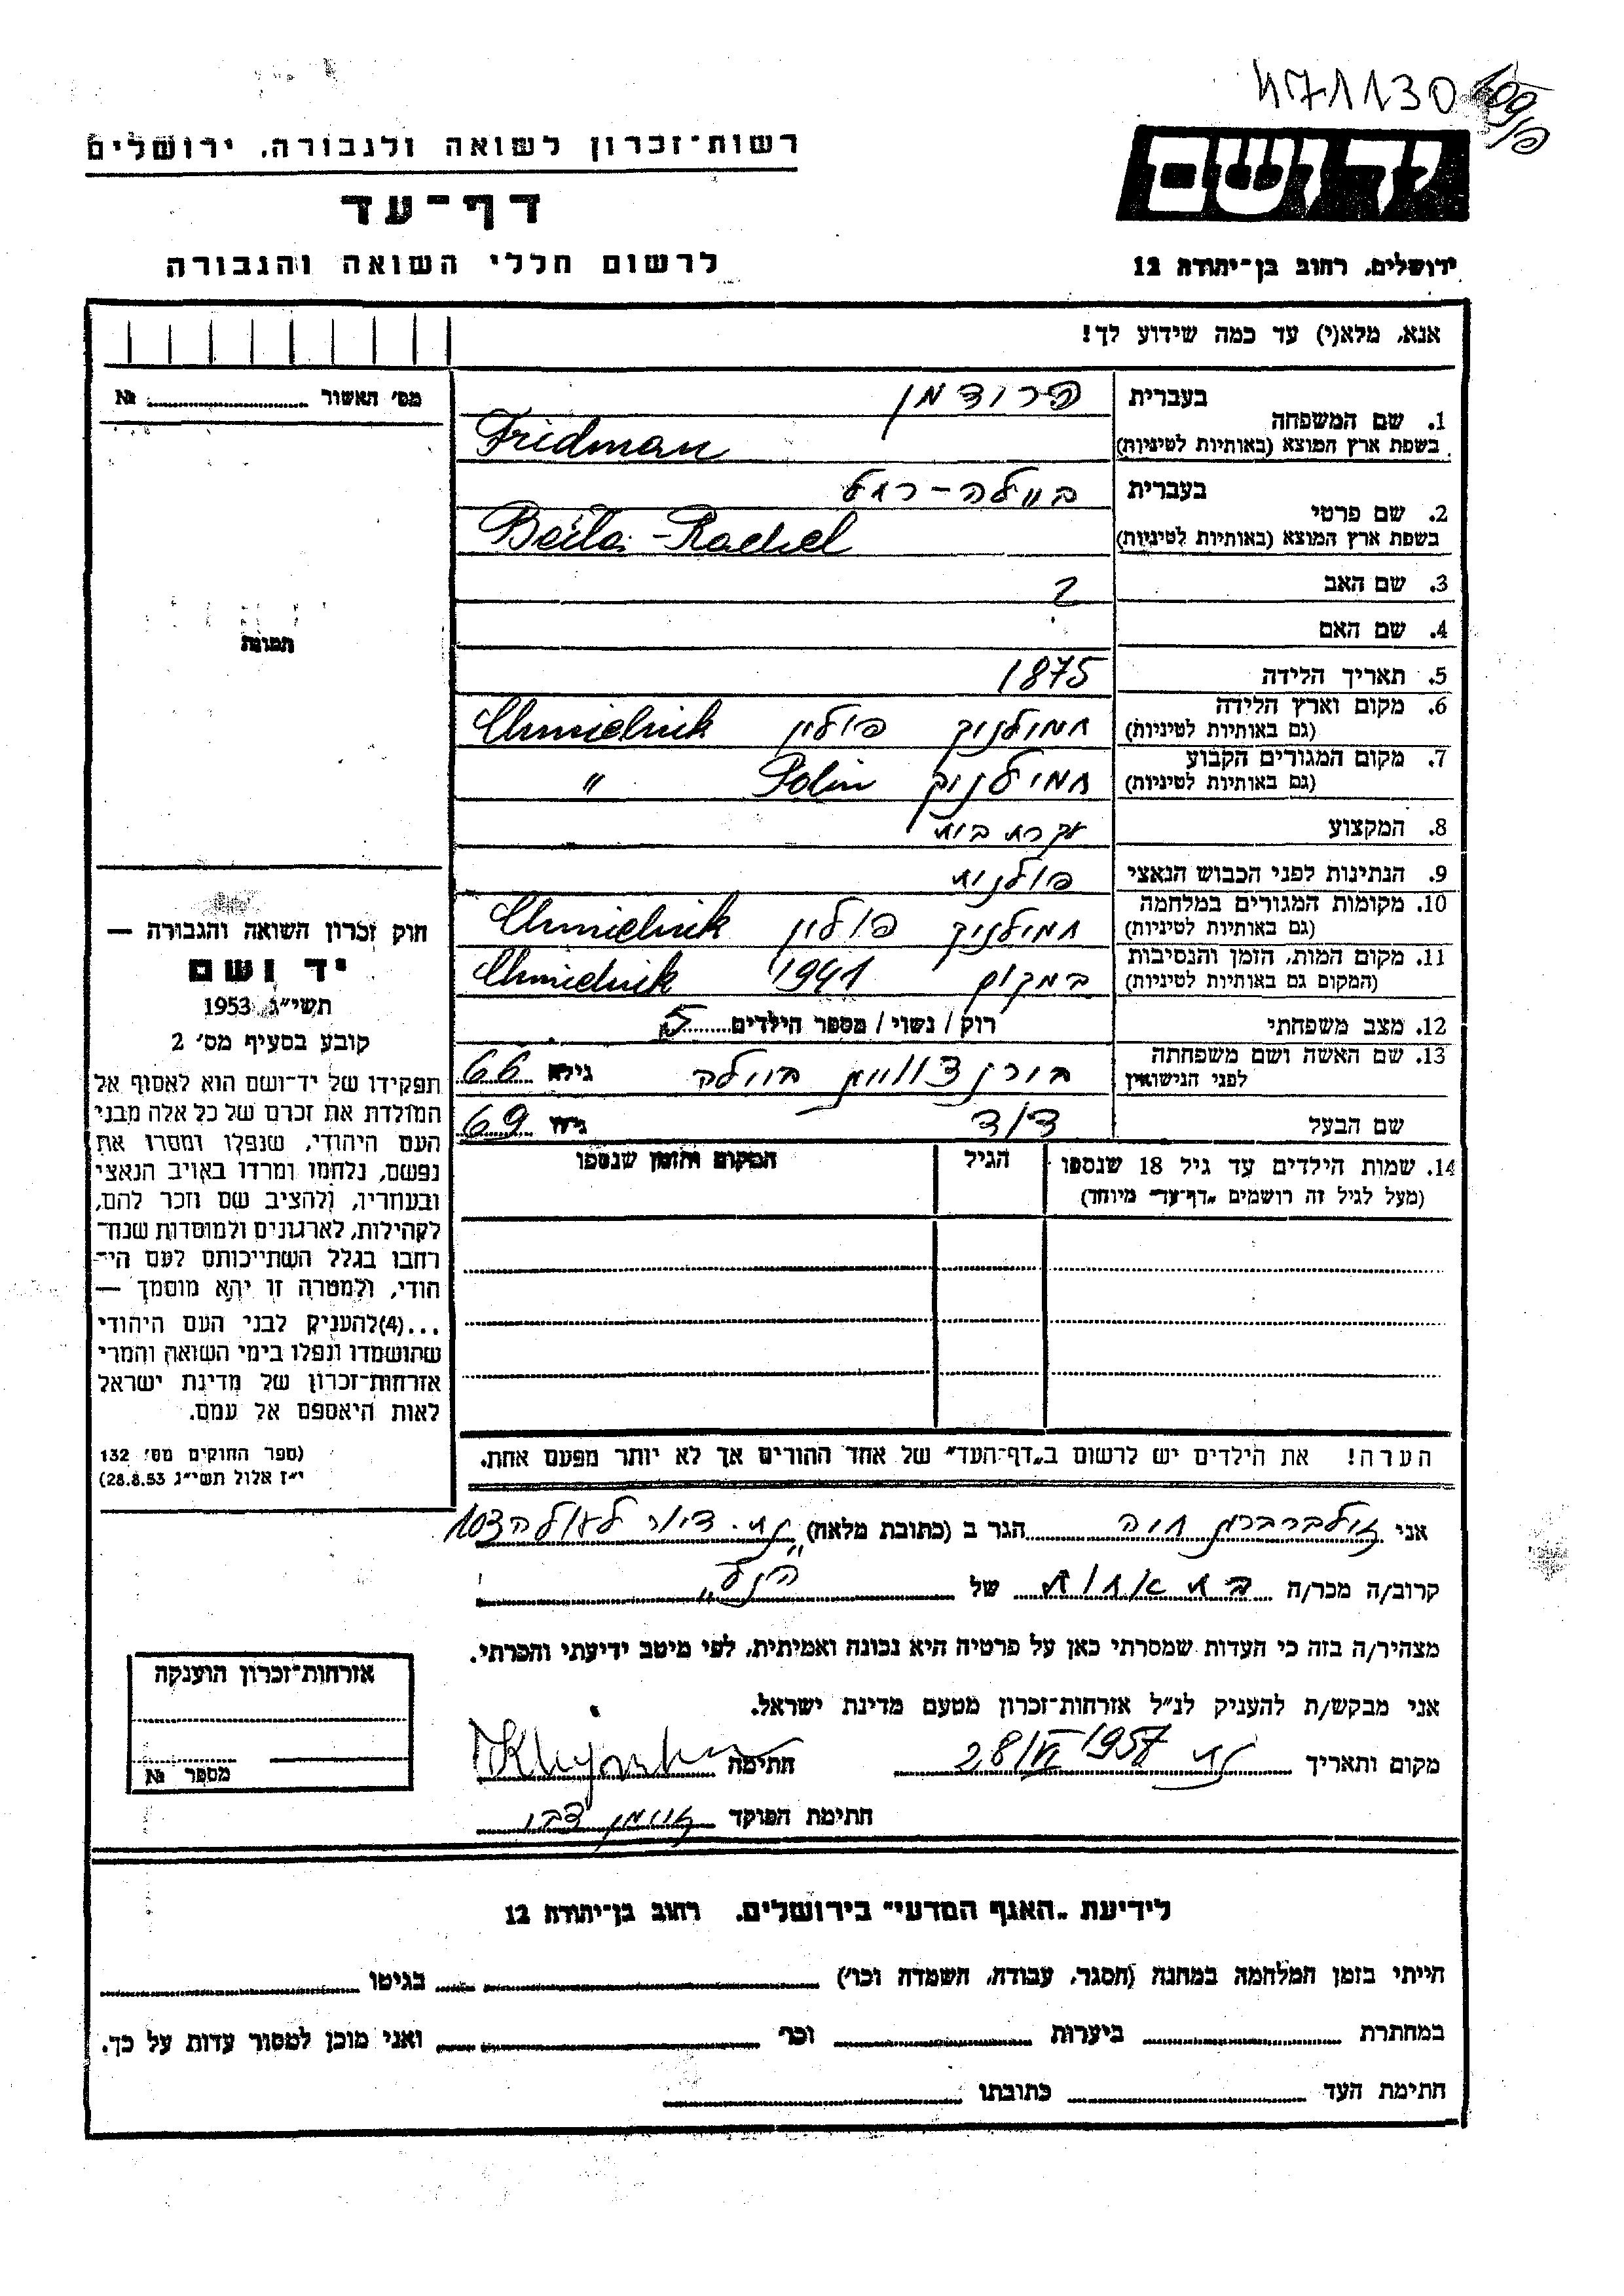 471130
רשות־זכרון לשואה ולגבורה, ירושלים
דף־עד
לרשום חללי השואה והגבורה
יד ושם
ירושלים, רחוב בן־יהודה 12
אנא, מלא(י) עד כמה שידוע לך!
מס׳ האשור № 
תמונה
בעברית פרידמן
1. שם המשפחה
בשפת ארץ המוצא (באותיות לטיניות) Fridman
בעברית ביילה-רחל
2. שם פרטי
בשפת ארץ המוצא (באותיות לטיניות) Beila-Rachel
3. שם האב ?
4. שם האם
5. תאריך הלידה 1875
6. מקום וארץ הלידה
(גם באותיות לטיניות) חמילניק פולין Chmielnik
7. מקום המגורים הקבוע
(גם באותיות לטיניות) חמילניק Polin "
8. המקצוע עקרת בית
9. הנתינות לפני הכבוש הנאצי פולנית
10. מקומות המגורים במלחמה
(גם באותיות לטיניות) חמילניק פולין Chmielnik
11. מקום המות, הזמן והנסיבות
(המקום גם באותיות לטיניות) במקום 1941 Chmielnik
12. מצב משפחתי רוק / נשוי / מספר הילדים 5
13. שם האשה ושם משפחתה
לפני הנישואין ביילה גילה 66
שם הבעל דוד גילו 69
14. שמות הילדים עד גיל 18 שנספו
(מעל לגיל זה רושמים „דף־עד״ מיוחד)
הגיל
המקום והזמן שנספו
חוק זכרון השואה והגבורה —
יד ושם
תשי״ג 1953
קובע בסעיף מס׳ 2
תפקידו של יד־ושם הוא לאסוף אל
המולדת את זכרם של כל אלה מבני
העם היהודי, שנפלו ומסרו את
נפשם, נלחמו ומרדו באויב הנאצי
ובעוזריו, ולהציב שם וזכר להם,
לקהילות, לארגונים ולמוסדות שנח־
רבו בגלל השתייכותם לעם הי־
הודי, ולמטרה זו יהא מוסמך —
...(4)להעניק לבני העם היהודי
שהושמדו ונפלו בימי השואה והמרי
אזרחות־זכרון של מדינת ישראל
לאות היאספם אל עמם.
(ספר החוקים מס׳ 132
י״ז אלול תשי״ג 28.8.53)
הערה! את הילדים יש לרשום ב„דף־העד״ של אחד ההורים אך לא יותר מפעם אחת.
אני זילברברג חיה הגר ב (כתובת מלאה) נת. דיור לעולה 103
קרוב/ה מכר/ה בת אחות של הנ״ל
מצהיר/ה בזה כי העדות שמסרתי כאן על פרטיה היא נכונה ואמיתית, לפי מיטב ידיעתי והכרתי.
אני מבקש/ת להעניק לנ״ל אזרחות־זכרון מטעם מדינת ישראל.
מקום ותאריך נת 28/VI 1957 חתימה
חתימת הפוקד
אזרחות־זכרון הוענקה
מספר №
לידיעת „האגף המדעי״ בירושלים, רחוב בן־יהודה 12
הייתי בזמן המלחמה במחנה (הסגר, עבודה, השמדה וכו׳) בגיטו
במחתרת ביערות וכו׳ ואני מוכן למסור עדות על כך.
חתימת העד כתובתו